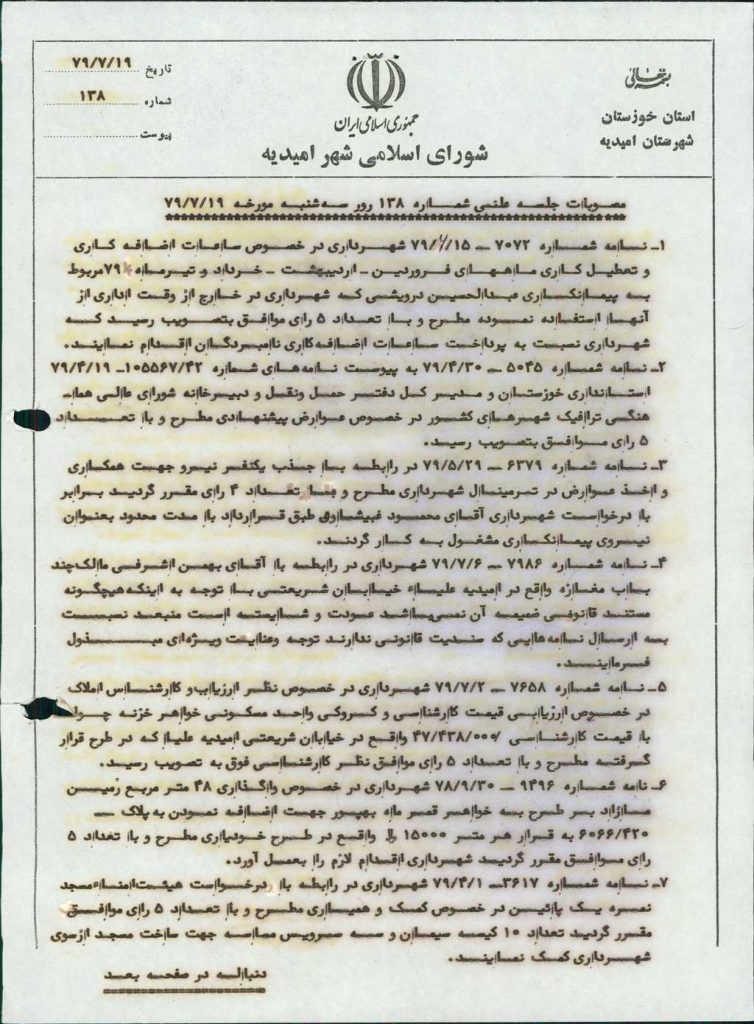 بسمه تعالی
استان خوزستان
شهرستان امیدیه
جمهوری اسلامی ایران
شورای اسلامی شهر امیدیه
تاریخ ۷۹/۷/۱۹
شماره ۱۳۸
پیوست
مصوبات جلسه علنی شماره ۱۳۸ روز سه شنبه مورخه ۷۹/۷/۱۹
۱ـ نامه شماره ۷۰۷۲ ـ ۷۹/۶/۱۵ شهرداری در خصوص ساعات اضافه کاری
و تعطیل کاری ماههای فروردین ـ اردیبهشت ـ خرداد و تیرماه ۷۹ مربوط
به پیمانکاری عبدالحسین درویشی که شهرداری در خارج از وقت اداری از
آنها استفاده نموده مطرح و با تعداد ۵ رای موافق بتصویب رسید که
شهرداری نسبت به پرداخت ساعات اضافه کاری نامبردگان اقدام نمایند.
۲ـ نامه شماره ۵۰۴۵ ـ ۷۹/۴/۳۰ به پیوست نامه های شماره ۱۰۵۵۶۷/۴۲ـ ۷۹/۴/۱۹
استانداری خوزستان و مدیر کل دفتر حمل ونقل و دبیرخانه شورای عالی هما‌ـ
هنگی ترافیک شهرهای کشور در خصوص عوارض پیشنهادی مطرح و با تعداد
۵ رای موافق بتصویب رسید.
۳ـ نامه شماره ۶۳۷۹ ـ ۷۹/۵/۲۹ در رابطه با جذب یکنفر نیرو جهت همکاری
و اخذ عوارض در ترمینال شهرداری مطرح و با تعداد ۴ رای مقرر گردید برابر
با درخواست شهرداری آقای محمود غبیشاوی طبق قرارداد با مدت محدود بعنوان
نیروی پیمانکاری مشغول به کار گردند.
۴ـ نامه شماره ۷۹۸۶ ـ ۷۹/۷/۶ شهرداری در رابطه با آقای بهمن اشرفی مالک چند
باب مغازه واقع در امیدیه علیاء خیابان شریعتی با توجه به اینکه هیچگونه
مستند قانونی ضمیمه آن نمی باشد عودت و شایسته است منبعد نسبت
به ارسال نامه هایی که سندیت قانونی ندارند توجه وعنایت ویژه ای مبذول
فرمایند.
۵ـ نامه شماره ۷۶۵۸ ـ ۷۹/۷/۲ شهرداری در خصوص نظر ارزیاب و کارشناس املاک
در خصوص ارزیابی قیمت کارشناسی و کروکی واحد مسکونی خواهر خزنه
با قیمت کارشناسی ۴۷/۴۳۸/۰۰۰ واقع در خیابان شریعتی امیدیه علیا که در طرح قرار
گرفته مطرح و با تعداد ۵ رای موافق نظر کارشناسی فوق به تصویب رسید.
۶ـ نامه شماره ۹۴۹۶ ـ ۷۸/۹/۳۰ شهرداری در خصوص واگذاری ۴۸ متر مربع زمین
مازاد بر طرح به خواهر قمر ماه بهپور جهت اضافه نمودن به پلاک ـ
۶۰۶۶/۴۲۰ به قرار هر متر ۱۵۰۰۰ ریال واقع در طرح خودیاری مطرح و با تعداد ۵
رای موافق مقرر گردید شهرداری اقدام لازم را بعمل آورد.
۷ـ نامه شماره ۳۶۱۷ـ ۷۹/۴/۱ شهرداری در رابطه با درخواست هیئت امناء مسجد
نمره یک پائین در خصوص کمک و همیاری مطرح و با تعداد ۵ رای موافق
مقرر گردید تعداد ۱۰ کیسه سیمان و سه سرویس ماسه جهت ساخت مسجد ازسوی
شهرداری کمک نمایند.
دنباله در صفحه بعد